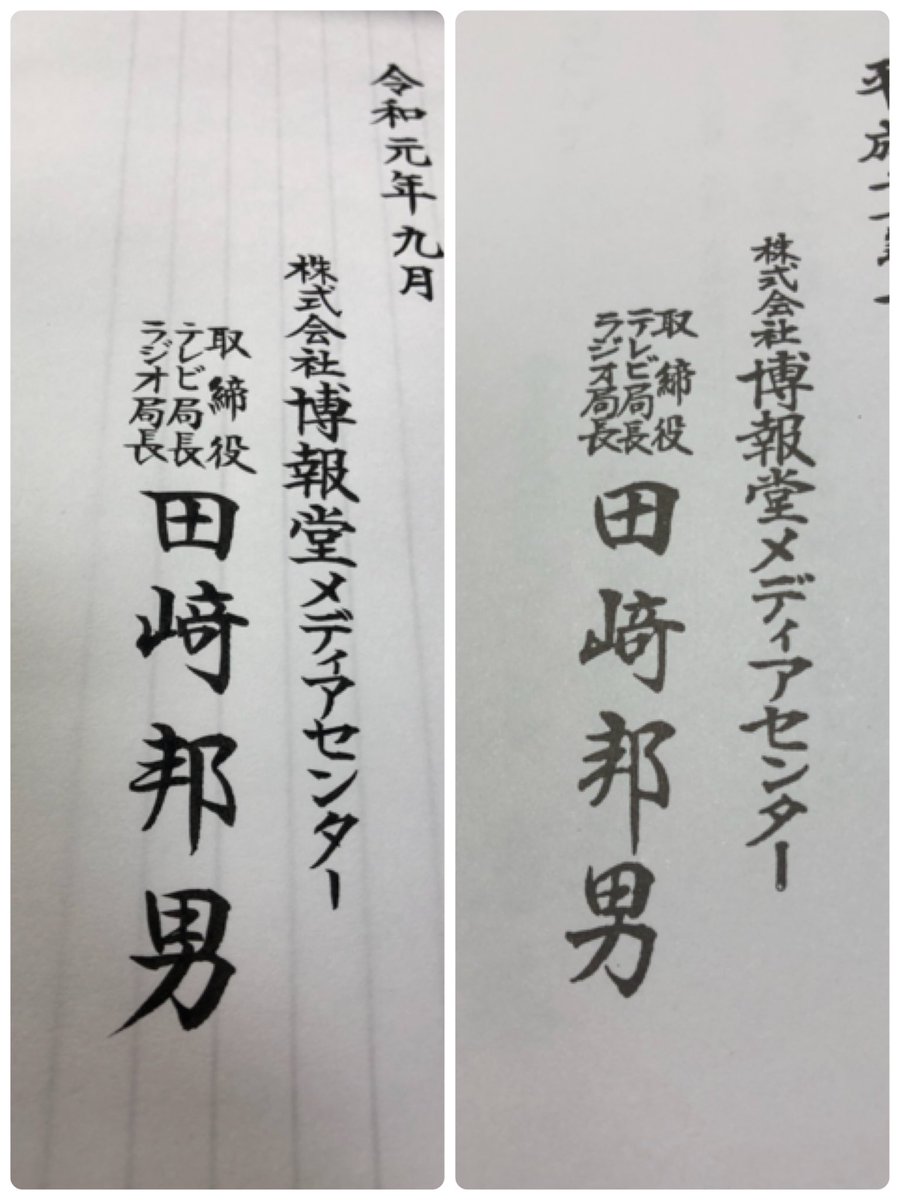 令和元年九月
株式会社博報堂メディアセンター
取締役
テレビ局長
ラジオ局長
田﨑邦男
平成
株式会社博報堂メディアセンター
取締役
テレビ局長
ラジオ局長
田﨑邦男